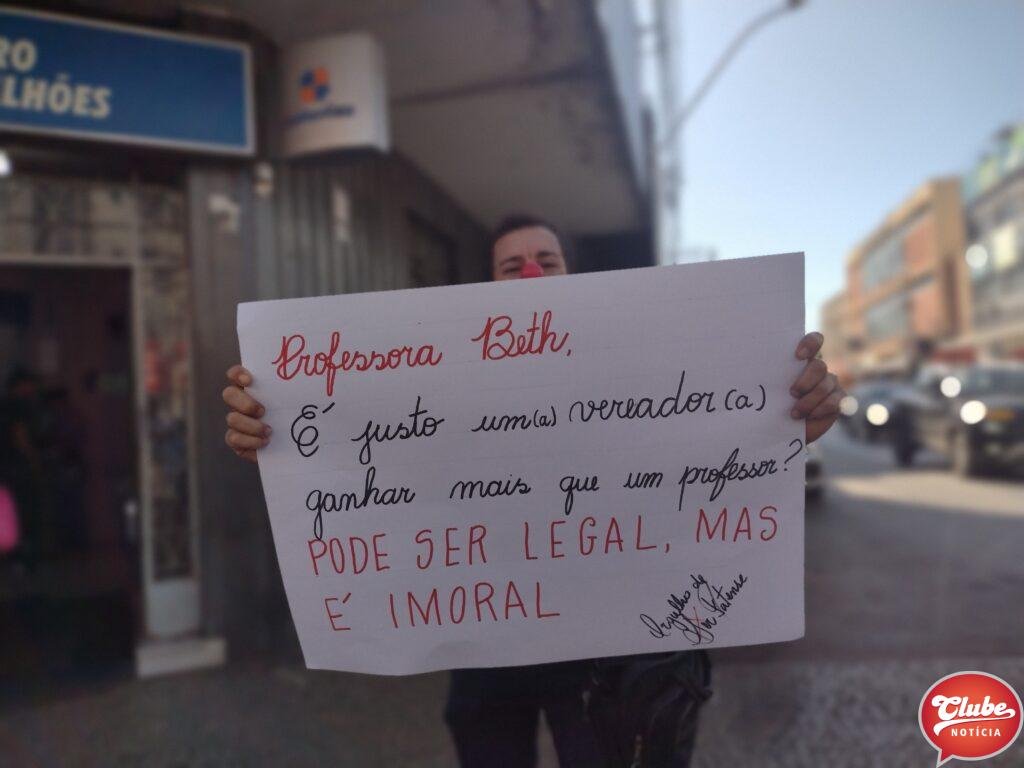 RO
LHÕES
Professora Beth,
É justo um(a) vereador(a)
ganhar mais que um professor?
PODE SER LEGAL, MAS
É IMORAL
Orgulho de
Ser Patense
Clube
NOTÍCIA